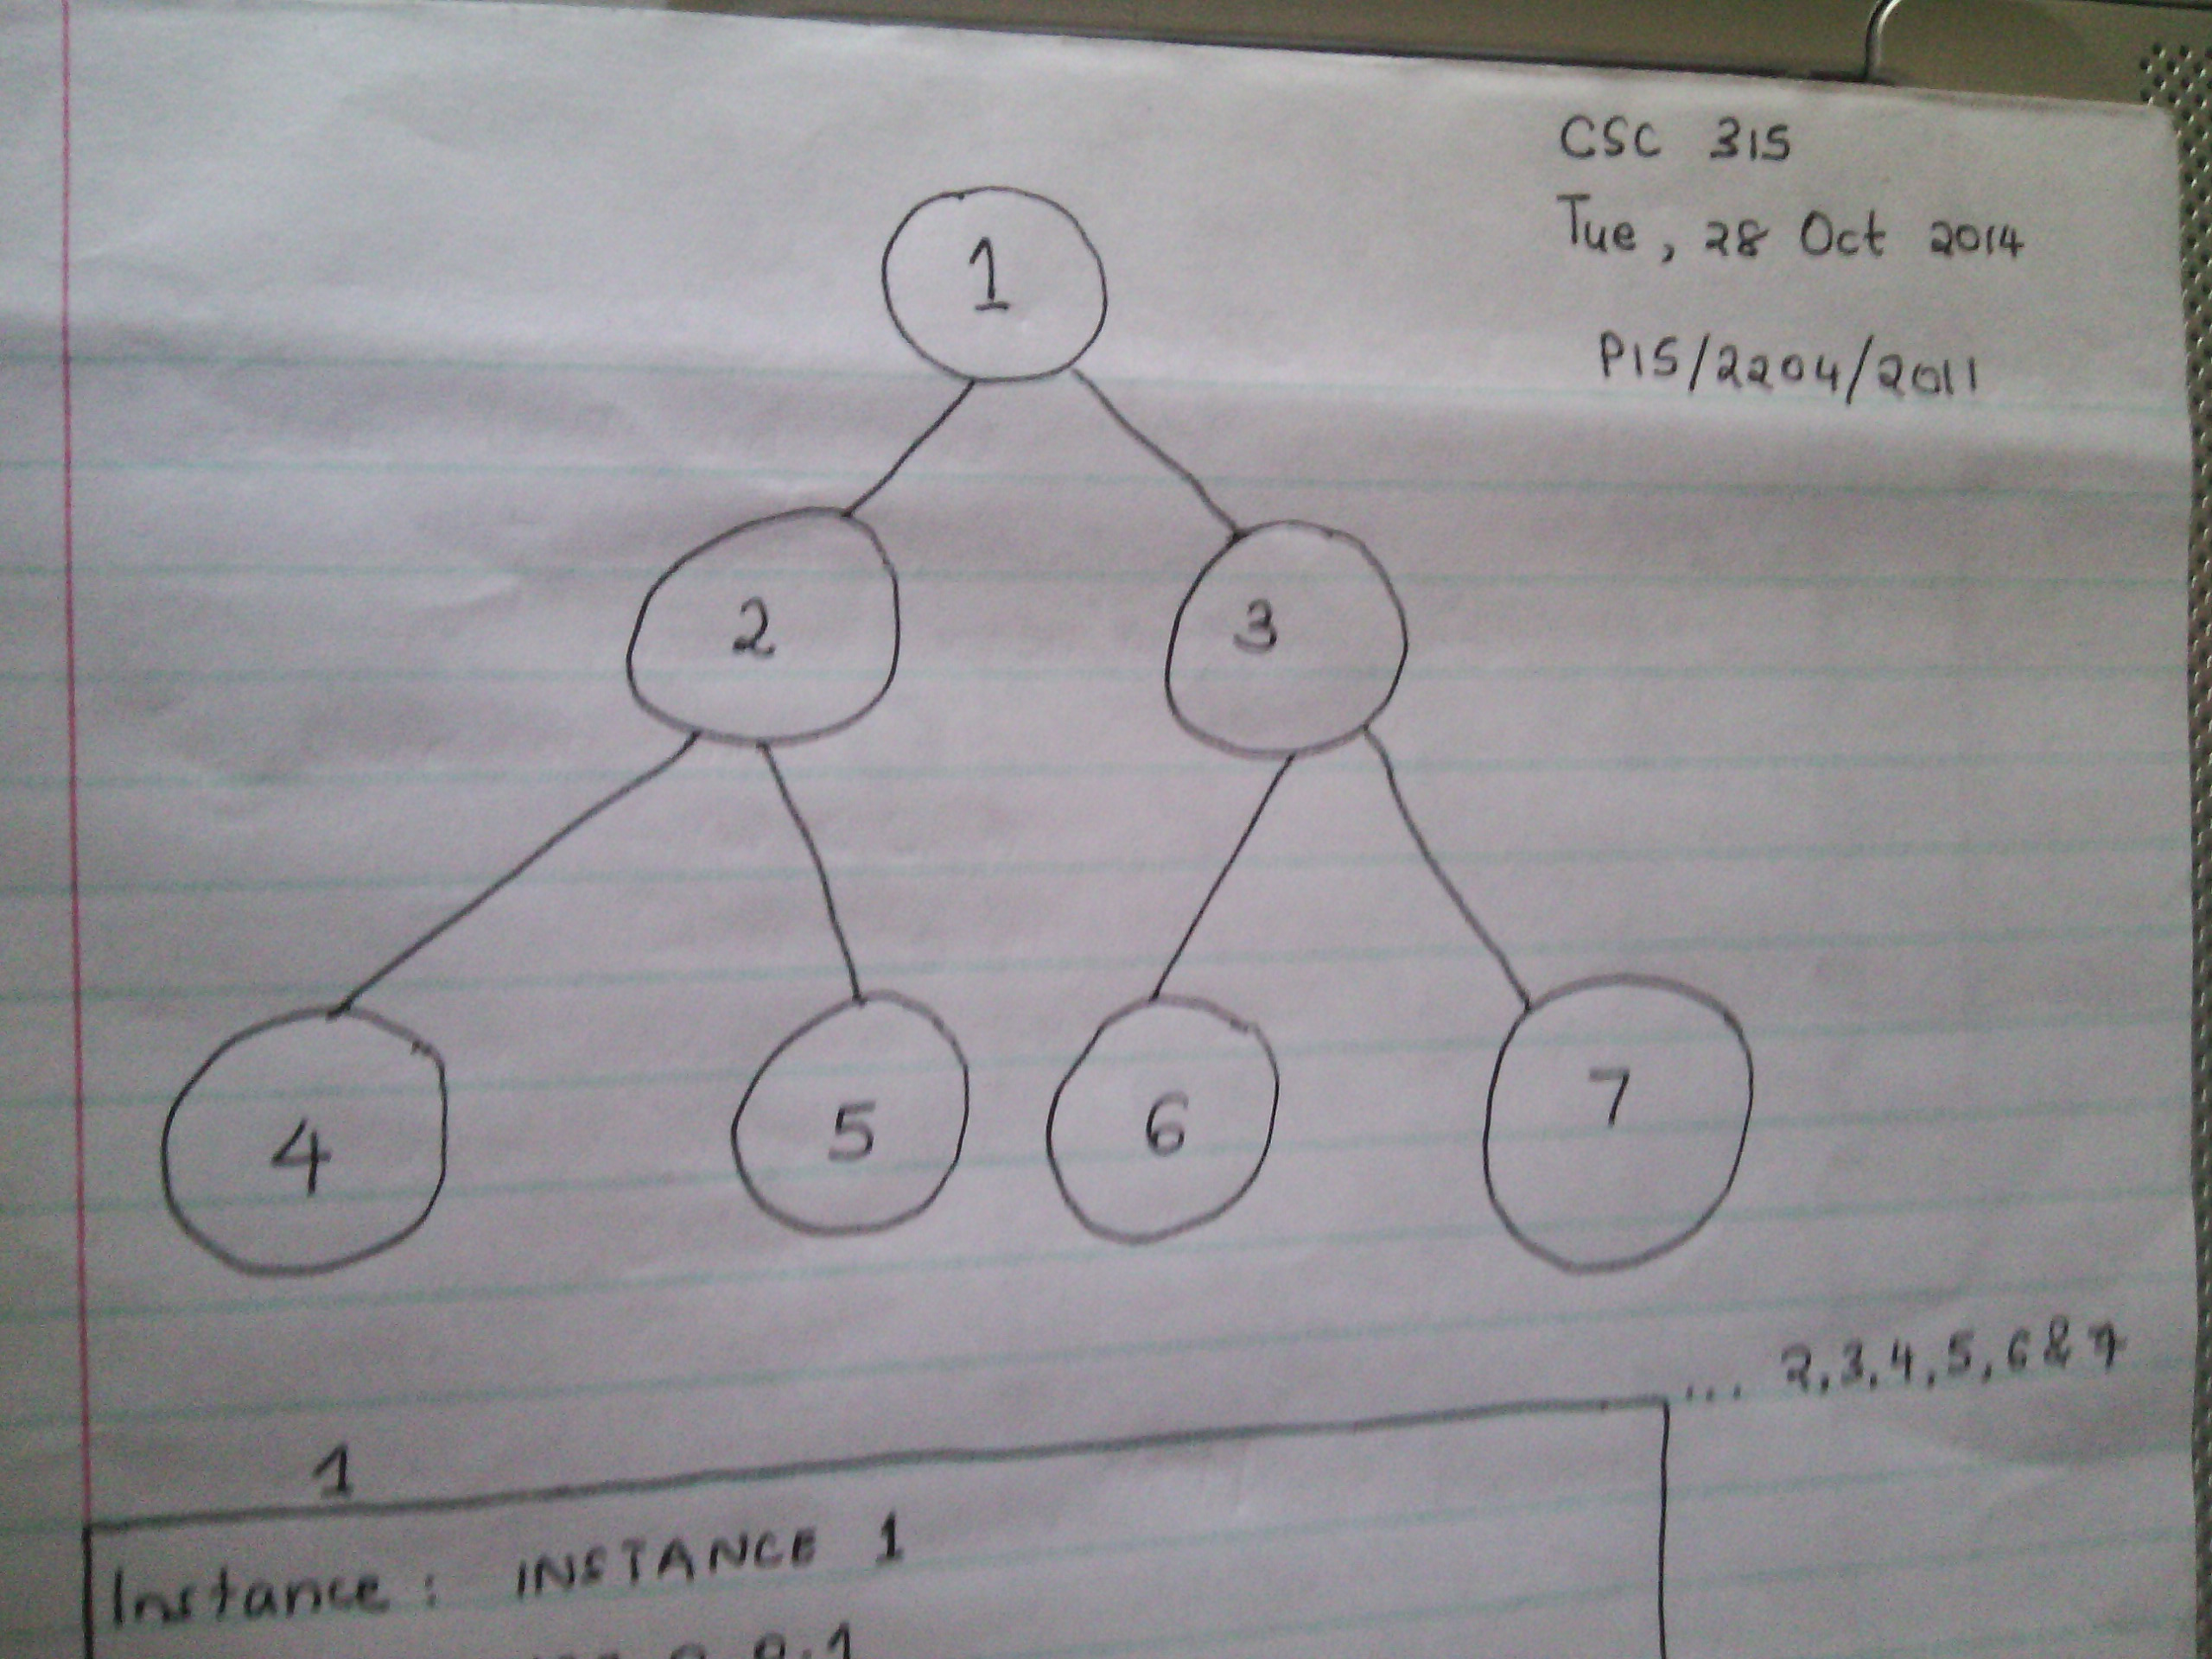 CSC 315
Tue, 28 Oct 2014
P15/2204/2011
1
2 3
4 5 6 7
... 2,3,4,5,6 & 7
1
Instance: INSTANCE 1
0.0.1